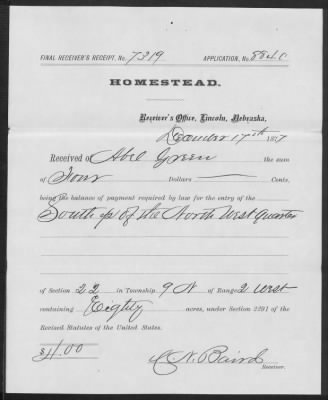 FINAL RECEIVER'S RECEIPT, No. 7319 APPLICATION, No. 8840
HOMESTEAD.
Receiver's Office, Lincoln, Nebraska,
December 17th 1877
Received of Abel Green the sum
of Four Dollars Cents,
being the balance of payment required by law for the entry of the
South ½ of the North West Quarter
of Section 22 in Township 9 N of Range 2 West
containing Eighty acres, under Section 2291 of the
Revised Statutes of the United States.
$4.00
N. Baird
Receiver.